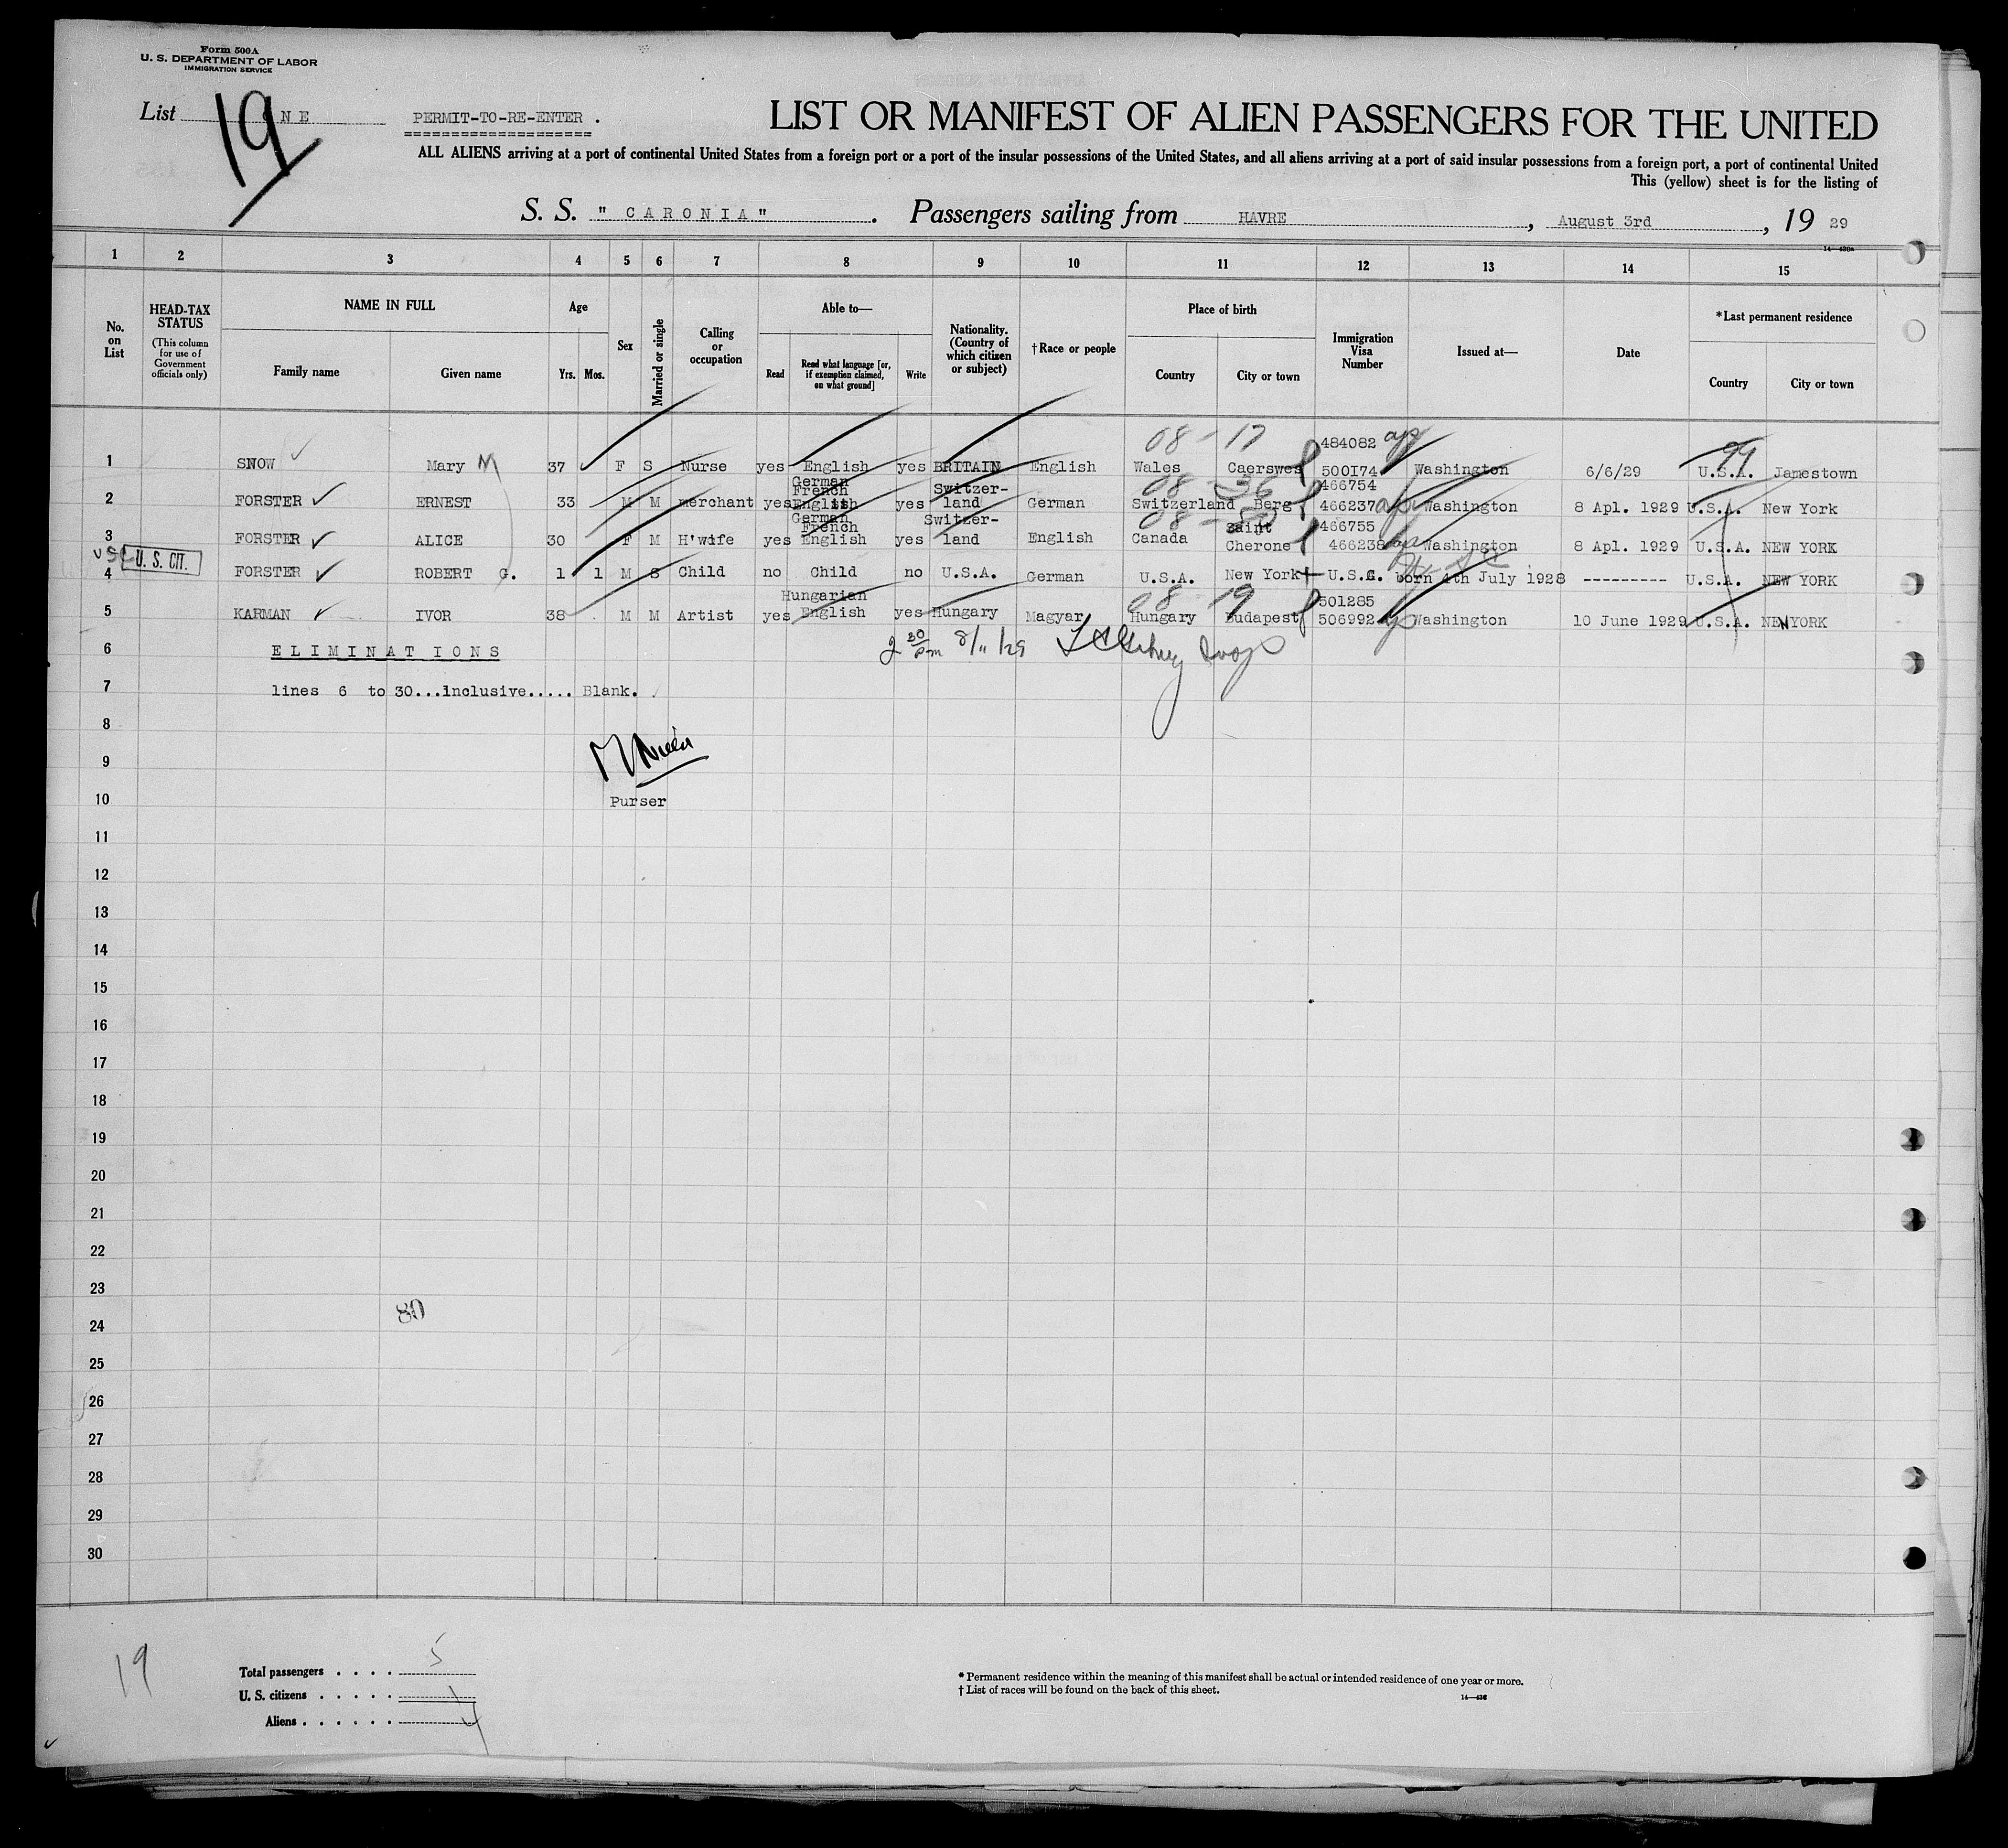 Form 500A
U. S. DEPARTMENT OF LABOR
IMMIGRATION SERVICE
List ONE
19
PERMIT-TO-RE-ENTER .
LIST OR MANIFEST OF ALIEN PASSENGERS FOR THE UNITED
ALL ALIENS arriving at a port of continental United States from a foreign port or a port of the insular possessions of the United States, and all aliens arriving at a port of said insular possessions from a foreign port, a port of continental United
This (yellow) sheet is for the listing of
S. S. " CARONIA " . Passengers sailing from HAVRE , August 3rd , 19 29
1 2 3 4 5 6 7 8 9 10 11 12 13 14 15
No. on List
HEAD-TAX STATUS
(This column for use of Government officials only)
NAME IN FULL
Family name
Given name
Age
Yrs. Mos.
Sex
Married or single
Calling or occupation
Able to—
Read
Read what language [or, if exemption claimed, on what ground]
Write
Nationality. (Country of which citizen or subject)
†Race or people
Place of birth
Country
City or town
Immigration Visa Number
Issued at—
Date
*Last permanent residence
Country
City or town
08-17 484082 99
1 SNOW Mary M 37 F S Nurse yes English yes BRITAIN English Wales Caersws 500174 Washington 6/6/29 U.S.A. Jamestown
German French Switzer- 08-36 466754
2 FORSTER ERNEST 33 M M merchant yes English yes land German Switzerland Berg 466237 Washington 8 Apl. 1929 U.S.A. New York
German French Switzer- Saint 466755
3 FORSTER ALICE 30 F M H'wife yes English yes land English Canada Cherone 466238 Washington 8 Apl. 1929 U.S.A. NEW YORK
U. S. CIT.
4 FORSTER ROBERT G. 1 1 M S Child no Child no U.S.A. German U.S.A. New York U.S.C. born 4th July 1928 --------- U.S.A. NEW YORK
Hungarian 08-19 501285
5 KARMAN IVOR 38 M M Artist yes English yes Hungary Magyar Hungary Budapest 506992 Washington 10 June 1929 U.S.A. NEWYORK
2 30 pm 8/11/29
6 ELIMINATIONS
7 lines 6 to 30...inclusive..... Blank.
8
9
10 Purser
11
12
13
14
15
16
17
18
19
20
21
22
23
80
24
25
26
27
28
29
30
19
Total passengers . . . . 5
U. S. citizens . . . . . 1
Aliens . . . . . . 4
* Permanent residence within the meaning of this manifest shall be actual or intended residence of one year or more.
† List of races will be found on the back of this sheet.
14—436